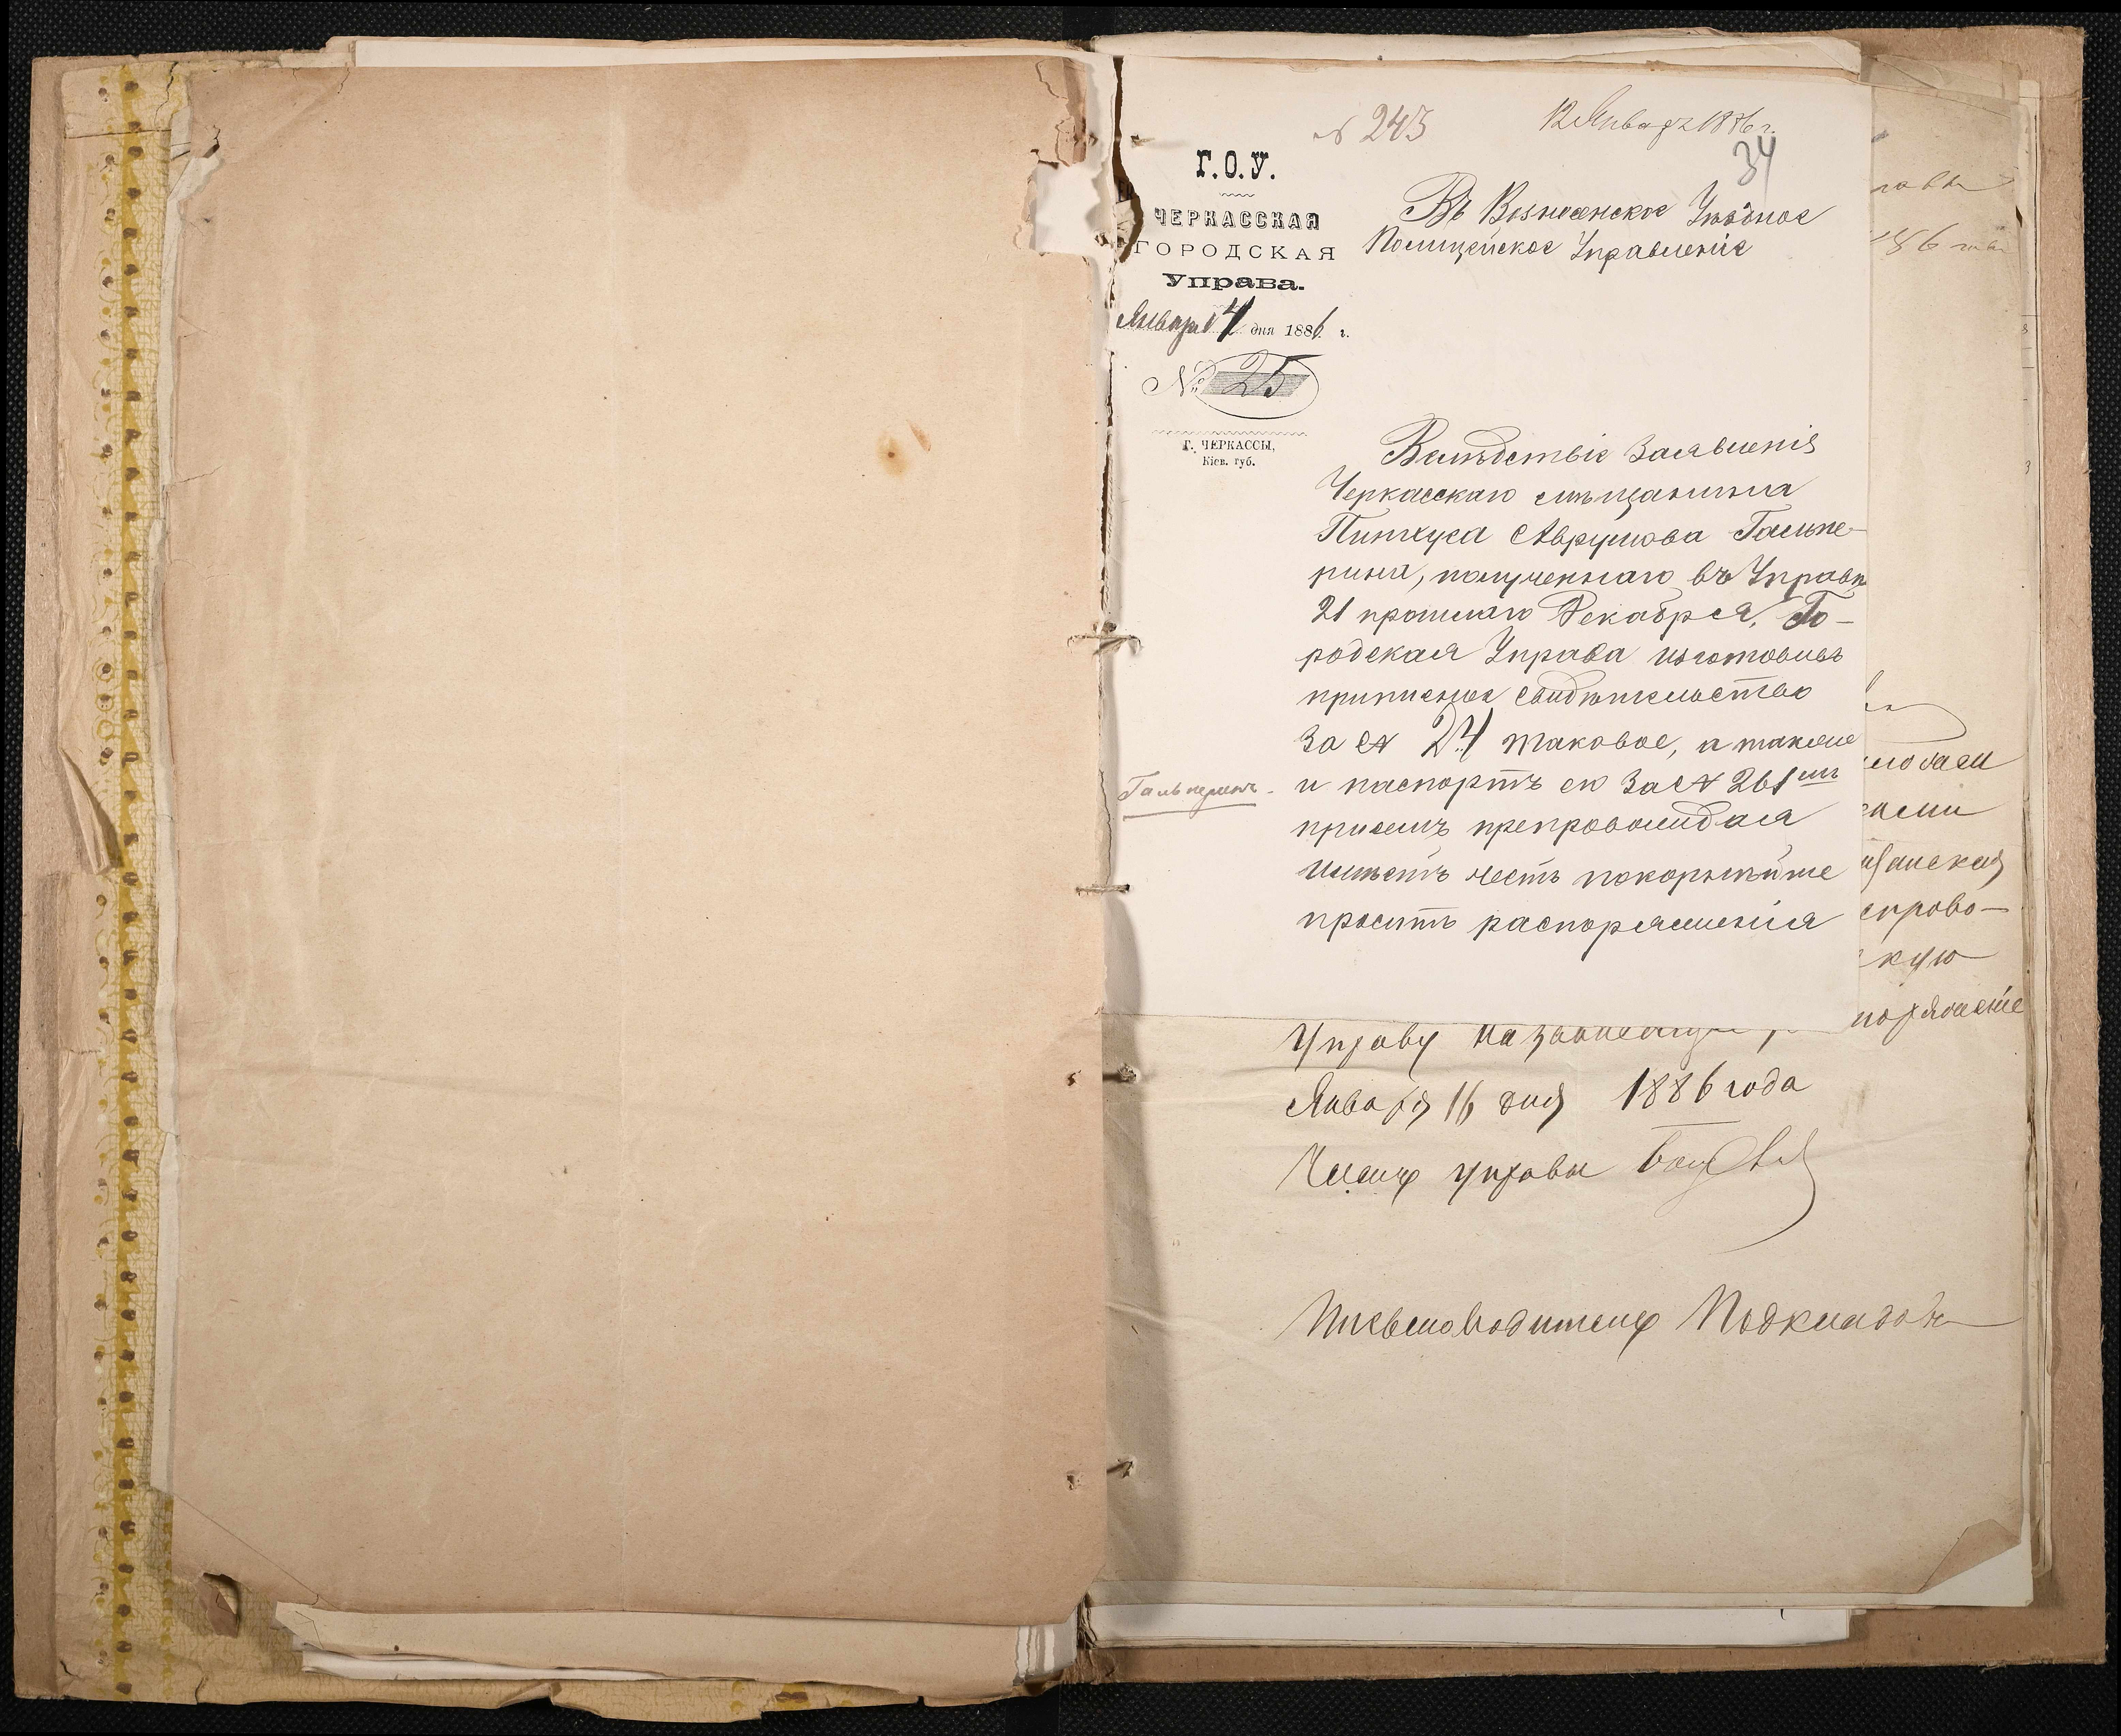 № 243
12 Января 1886 г.
34
Г.О.У.
ЧЕРКАССКАЯ
ГОРОДСКАЯ
Управа.
Января 4 дня 1886 г.
№ 25
Г. ЧЕРКАССЫ,
Кіев. губ.
Въ Вознесенское Уѣздное
Полицейское Управленіе
Вслѣдствіе заявленія
Черкасскаго мѣщанина
Пинхуса Аврумова Гальпе-
рина, полученнаго въ Управѣ
21 прошлаго Декабря, Го-
родская Управа изготовивъ
приписное свидѣтельство
за № 24 таковое, а также
и паспортъ ея за № 261
Гальперинъ.
присемъ препровождая
имѣетъ честь покорнѣйше
просить распоряженія
Управу
Января 16 дня 1886 года
Членъ управы
Письмоводитель
кую